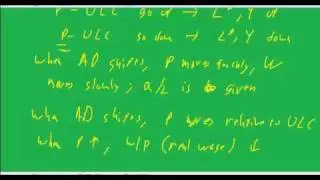 P - ULC go up → L↑, Y up
P - ULC go down → L↑, Y down
When AD shifts, P moves quickly, W
moves slowly; a/L is given
When AD shifts, P moves relative to ULC
when P↑, W/P (real wage) ↓